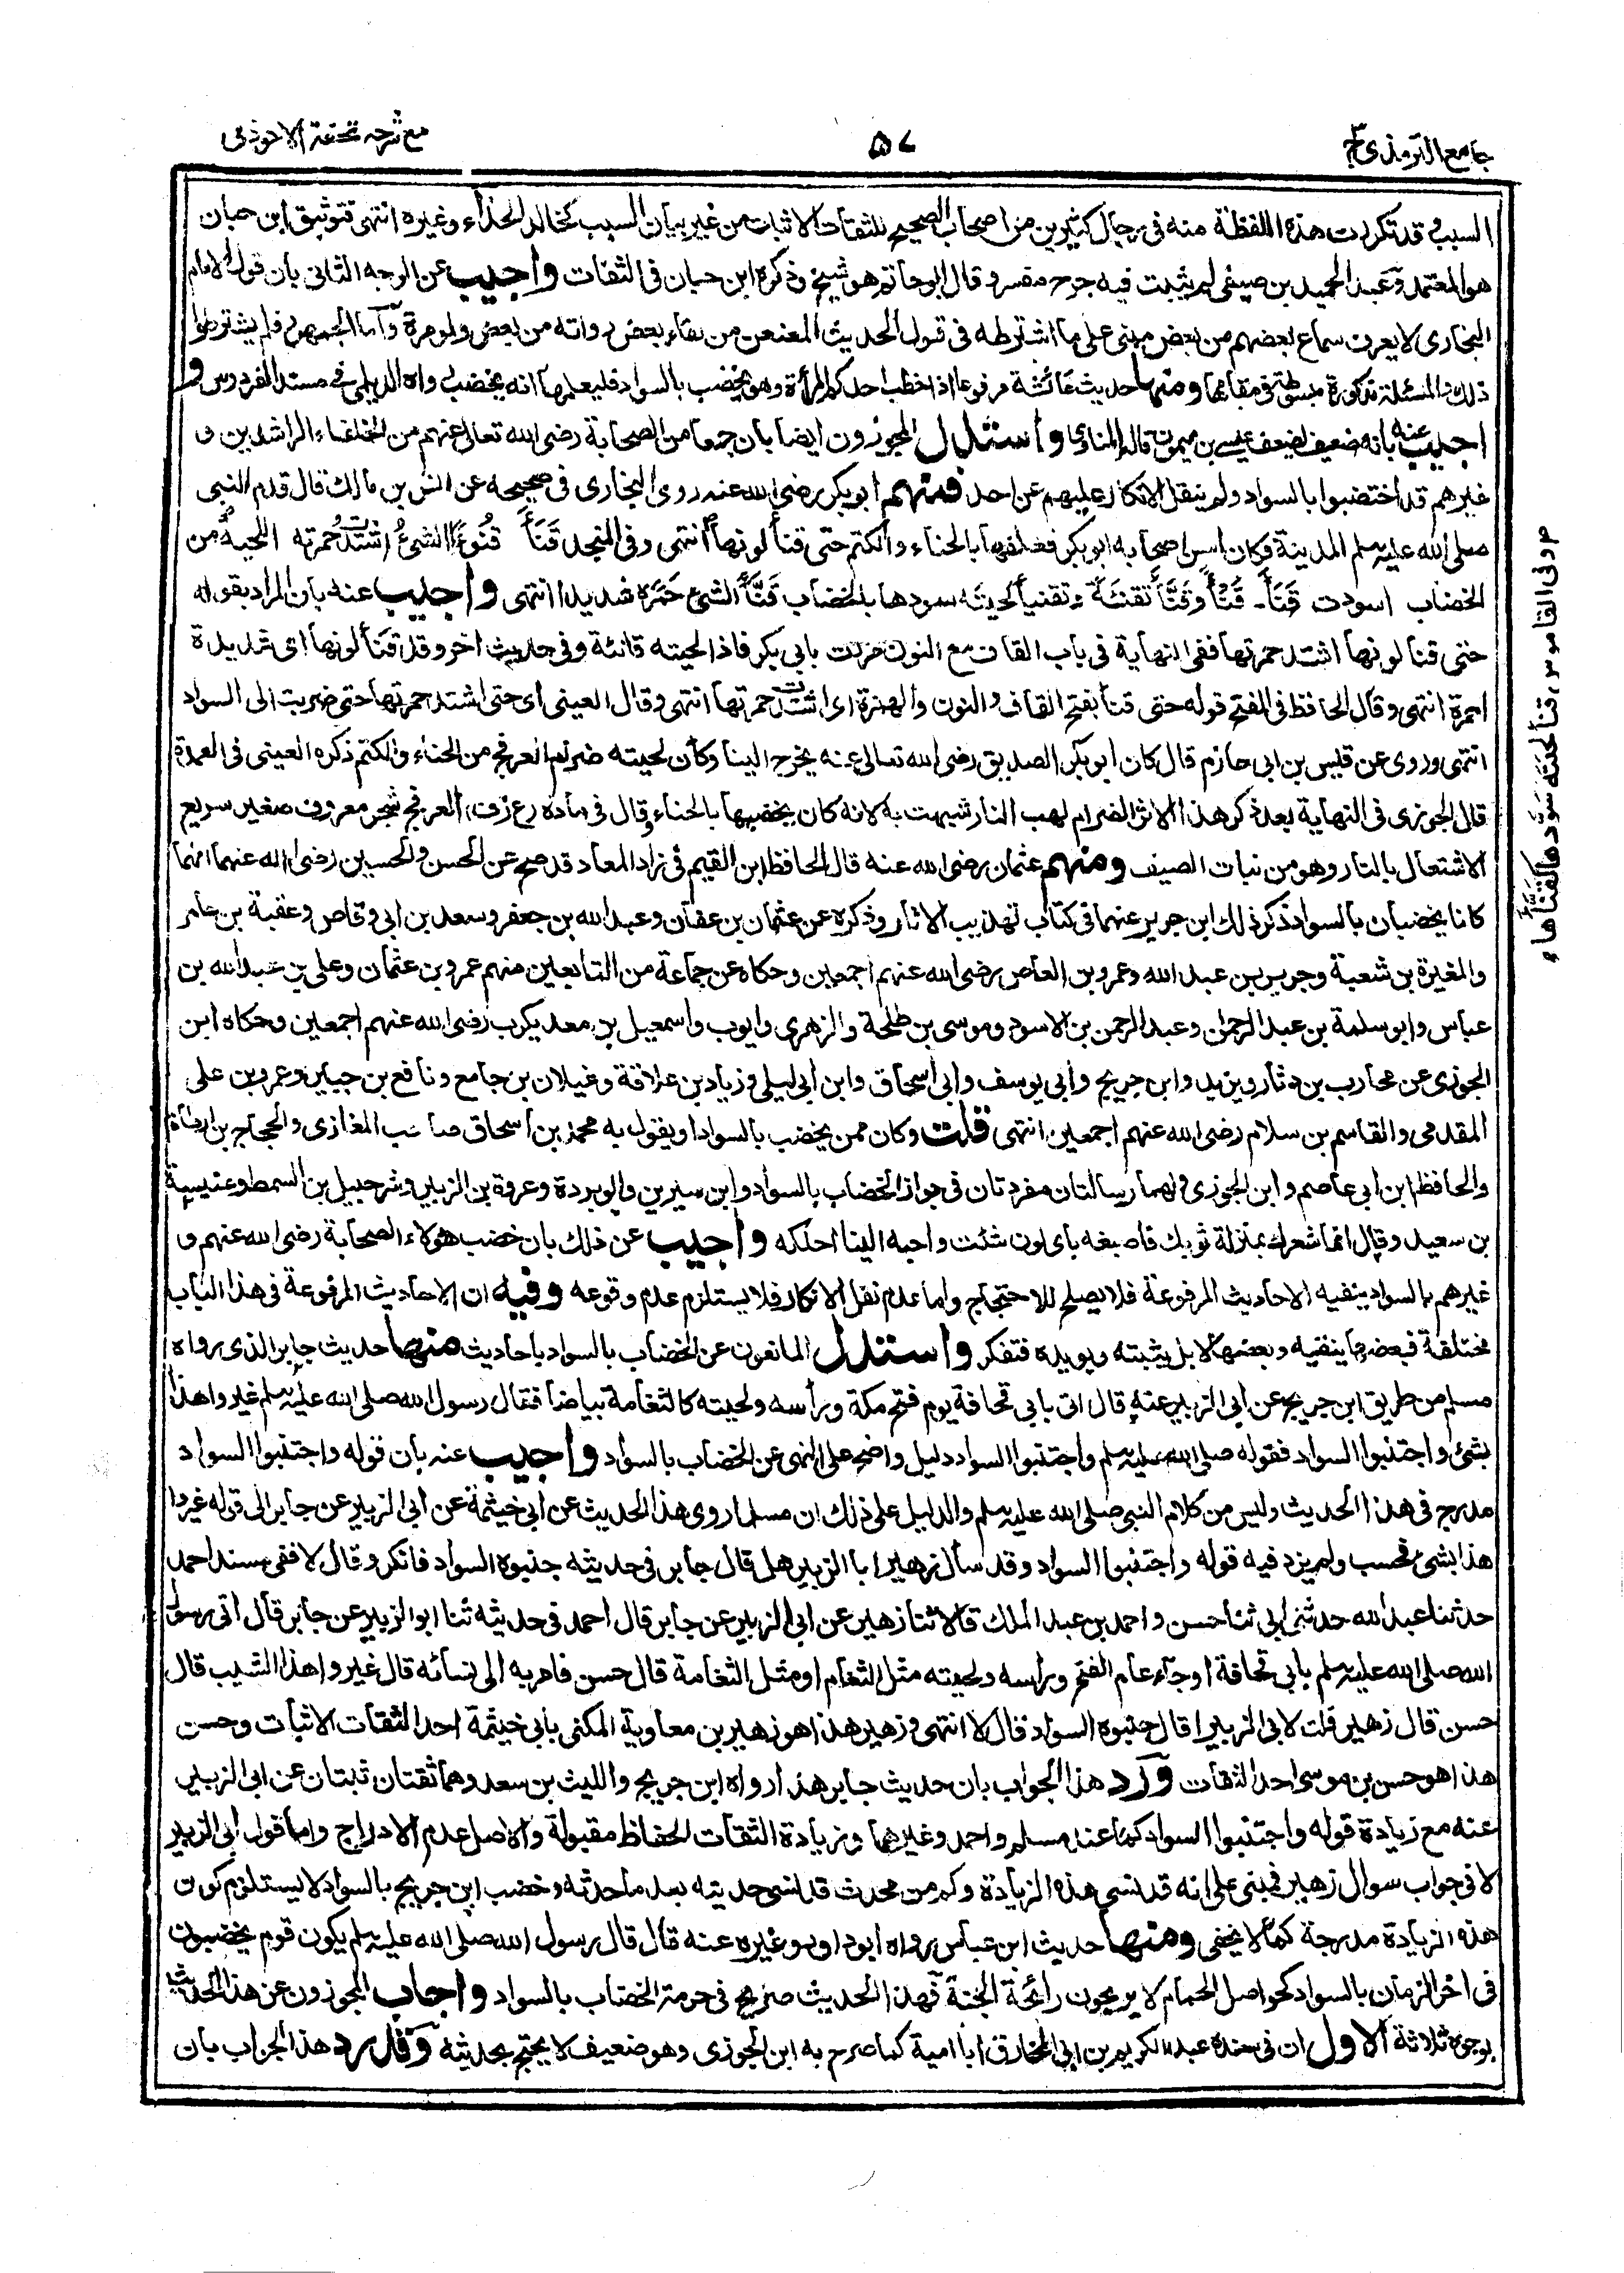 جامع الترمذی ج۳
۵۷
مع شرحه تحفة الاحوذی
السبب وقد تكررت هذه اللفظة منه فى رجال كثيرين من اصحاب الصحيح للثقات الاثبات من غير بيان السبب كخالد الحذاء وغيره انتهى فتوثيق ابن حبان
هو المعتمد وعبد الحميد بن صيفى لم يثبت فيه جرح مفسر وقال ابو حاتم هو شيخ وذكره ابن حبان فى الثقات واجيب عن الوجه الثانى بان قول الامام
البخارى لا يعرف سماع بعضهم من بعض مبنى على ما اشترطه فى قبول الحديث المعنعن من بقاء بعض رواته من بعض ولو مرة وآما الجمهور فلم يشترطوا
ذلك والمسئلة مذكورة مبسوطة فى مقامها ومنها حديث عائشة مرفوعا اذا خطب احدكم المرأة وهو يخضب بالسواد فليعلمها انه يخضب رواه الديلمى فى مسند الفردوس و
اجيب عنه بانه ضعيف لضعف عيسى بن ميمون قاله المناوى واستدل المجوزون ايضا بان جمعا من الصحابة رضى الله تعالى عنهم من الخلفاء الراشدين و
غيرهم قد اختضبوا بالسواد ولم ينقل الانكار عليهم عن احد فمنهم ابو بكر رضى الله عنه روى البخارى فى صحيحه عن انس بن مالك قال قدم النبى
صلى الله عليه وسلم المدينة فكان اسن اصحابه ابو بكر فغلفها بالحناء والكتم حتى قنأ لونها انتهى وفى المنجد قَنَأَ قُنُوءًا الشئُ اشتدت حُمرته اللحيةُ من
الخضاب اسودت قَنَأَ- قَنْأً وقَنَّأَ تقنئةً وتقنيأً لحيتَه سودها بالخضاب قَنَّأَ الشئَ حَمَّرَه شديدا انتهى واجيب عنه بان المراد بقوله
حتى قنأ لونها اشتد حمرتها ففى النهاية فى باب القاف مع النون مررت بابى بكر فاذا لحيته قانئة وفى حديث اخر وقد قنأ لونها اى شديدة
احمرة انتهى وقال الحافظ فى الفتح قوله حتى قنأ بفتح القاف والنون والهمزة اى اشتدت حمرتها انتهى وقال العينى اى حتى اشتد حمرتها حتى ضربت الى السواد
انتهى وروى عن قيس بن ابى حازم قال كان ابو بكر الصديق رضى الله تعالى عنه يخرج الينا وكأن لحيته ضرام العرفج من الحناء والكتم ذكره العينى فى العمدة
قال الجزرى فى النهاية بعد ذكر هذا الاثر الضرام لهب النار شبهت به لانه كان يخضبها بالحناء وقال فى مادة (ع ر ف) العرفج شجر معروف صغير سريع
الاشتعال بالنار وهو من نبات الصيف ومنهم عثمان رضى الله عنه قال الحافظ ابن القيم فى زاد المعاد قد صح عن الحسن والحسين رضى الله عنهما انهما
كانا يخضبان بالسواد ذكر ذلك ابن جرير عنهما فى كتاب تهذيب الاثار وذكره عن عثمان بن عفان وعبد الله بن جعفر وسعد بن ابى وقاص وعقبة بن عامر
والمغيرة بن شعبة وجرير بن عبد الله وعمرو بن العاص رضى الله عنهم اجمعين وحكاه عن جماعة من التابعين منهم عمرو بن عثمان وعلى بن عبد الله بن
عباس وابو سلمة بن عبد الرحمن وعبد الرحمن بن الاسود وموسى بن طلحة والزهرى وايوب واسمعيل بن معد يكرب رضى الله عنهم اجمعين وحكاه ابن
الجوزى عن محارب بن دثار ويزيد وابن جريج وأبى يوسف وأبى اسحاق وابن ابى ليلى وزياد بن علاقة وغيلان بن جامع ونافع بن جبير وعمرو بن على
المقدمى والقاسم بن سلام رضى الله عنهم اجمعين انتهى قلت وكان ممن يخضب بالسواد او يقول به محمد بن اسحاق صاحب المغازى والحجاج بن ارطاة
والحافظ ابن ابى عاصم وابن الجوزى ولهما رسالتان مفردتان فى جواز الخضاب بالسواد وابن سيرين وابو بردة وعروة بن الزبير وشرحبيل بن السمط وعنبسة
بن سعيد وقال انما شعرك بمنزلة ثوبك فاصبغه باى لون شئت واحبه الينا احلكه واجيب عن ذلك بان خضب هؤلاء الصحابة رضى الله عنهم و
غيرهم بالسواد ينفيه الاحاديث المرفوعة فلا يصلح للاحتجاج واما عدم نقل الانكار فلا يستلزم عدم وقوعه وفيه ان الاحاديث المرفوعة فى هذا الباب
مختلفة فبعضها ينفيه وبعضها لا بل يثبته ويويده فتفكر واستدل المانعون عن الخضاب بالسواد باحاديث منها حديث جابر الذى رواه
مسلم من طريق ابن جريج عن ابى الزبير عنه قال اتى بابى قحافة يوم فتح مكة ورأسه ولحيته كالثغامة بياضا فقال رسول الله صلى الله عليه وسلم غيروا هذا
بشئ واجتنبوا السواد فقوله صلى الله عليه وسلم واجتنبوا السواد دليل واضح على النهى عن الخضاب بالسواد واجيب عنه بان قوله واجتنبوا السواد
مدرج فى هذا الحديث وليس من كلام النبى صلى الله عليه وسلم والدليل على ذلك ان مسلما روى هذا الحديث عن ابى خيثمة عن ابى الزبير عن جابر الى قوله غيروا
هذا بشئ فحسب ولم يزد فيه قوله واجتنبوا السواد وقد سأل زهير ابا الزبير هل قال جابر فى حديثه جنبوه السواد فانكر وقال لا ففى مسند احمد
حدثنا عبد الله حدثنى ابى ثنا حسن واحمد بن عبد الملك قالا ثنا زهير عن ابى الزبير عن جابر قال احمد فى حديثه ثنا ابو الزبير عن جابر قال اتى رسول
الله صلى الله عليه وسلم بابى قحافة او جاء عام الفتح ورأسه ولحيته مثل الثغام او مثل الثغامة قال حسن فامر به الى نسائه قال غيروا هذا الشيب قال
حسن قال زهير قلت لابى الزبير اقال جنبوه السواد قال لا انتهى وزهير هذا هو زهير بن معاوية المكنى بابى خيثمة احد الثقات الاثبات وحسن
هذا هو حسن بن موسى احد الثقات ورد هذا الجواب بان حديث جابر هذا رواه ابن جريج والليث بن سعد وهما ثقتان ثبتان عن ابى الزبير
عنه مع زيادة قوله واجتنبوا السواد كما عند مسلم واحمد وغيرهما وزيادة الثقات الحفاظ مقبولة والاصل عدم الادراج واما قول ابى الزبير
لا فى جواب سوال زهير فمبنى على انه قد نسى هذه الزيادة وكم من محدث قد نسى حديثه بعد ما حدثه وخضب ابن جريج بالسواد لا يستلزم كون
هذه الزيادة مدرجة كما لا يخفى ومنها حديث ابن عباس رواه ابو داود وغيره عنه قال قال رسول الله صلى الله عليه وسلم يكون قوم يخضبون
فى اخر الزمان بالسواد كحواصل الحمام لا يريحون رائحة الجنة فهذا الحديث صريح فى حرمة الخضاب بالسواد واجاب المجوزون عن هذا الحديث
بوجوه ثلاثة الاول ان فى سنده عبد الكريم بن ابى المخارق ابا امية كما صرح به ابن الجوزى وهو ضعيف لا يحتج بحديثه وقد رد هذا الجواب بان
م وفى القاموس قنأ لحيته سوّدها كقنّأها